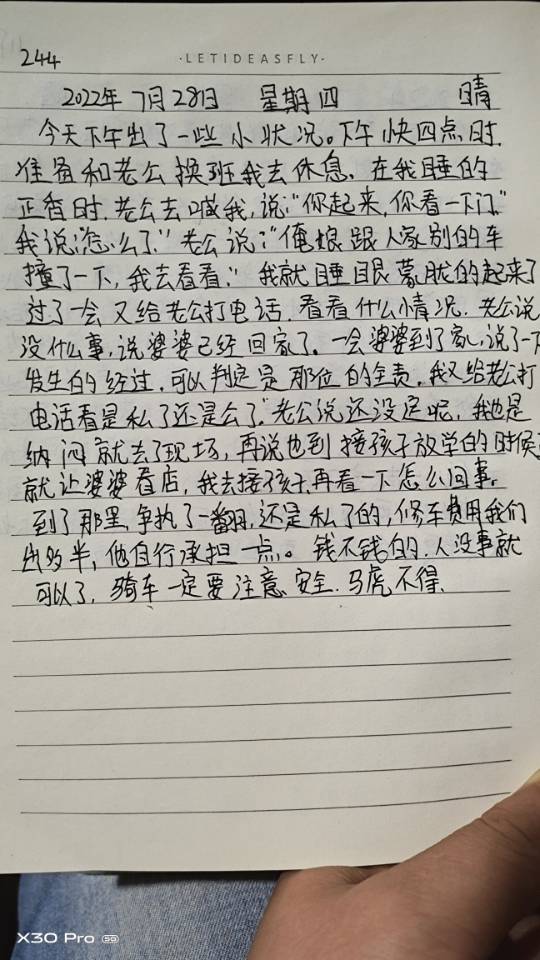 244
·LETIDEASFLY·
2022年 7月28日 星期四 晴
今天下午出了一些小状况。下午快四点时.
准备和老公换班我去休息. 在我睡的
正香时.老公去喊我,说:“你起来,你看一下门.”
我说:“怎么了.”老公说:“俺娘跟人家别的车
撞了一下,我去看看.”我就睡眼蒙胧的起来了
过了一会又给老公打电话.看看什么情况.老公说
没什么事,说婆婆已经回家了。一会婆婆到了家,说了一下
发生的经过.可以判定是那位的全责.我又给老公打
电话看是私了还是么了.“老公说还没定呢,我也是
纳闷就去了现场,再说也到接孩子放学的时候
就让婆婆看店,我去接孩子,再看一下怎么回事.
到了那里,争执了一翻,还是私了的,修车费用我们
出多半,他自行承担一点。钱不钱的.人没事就
可以了.骑车一定要注意安全.马虎不得.
X30 Pro 5G